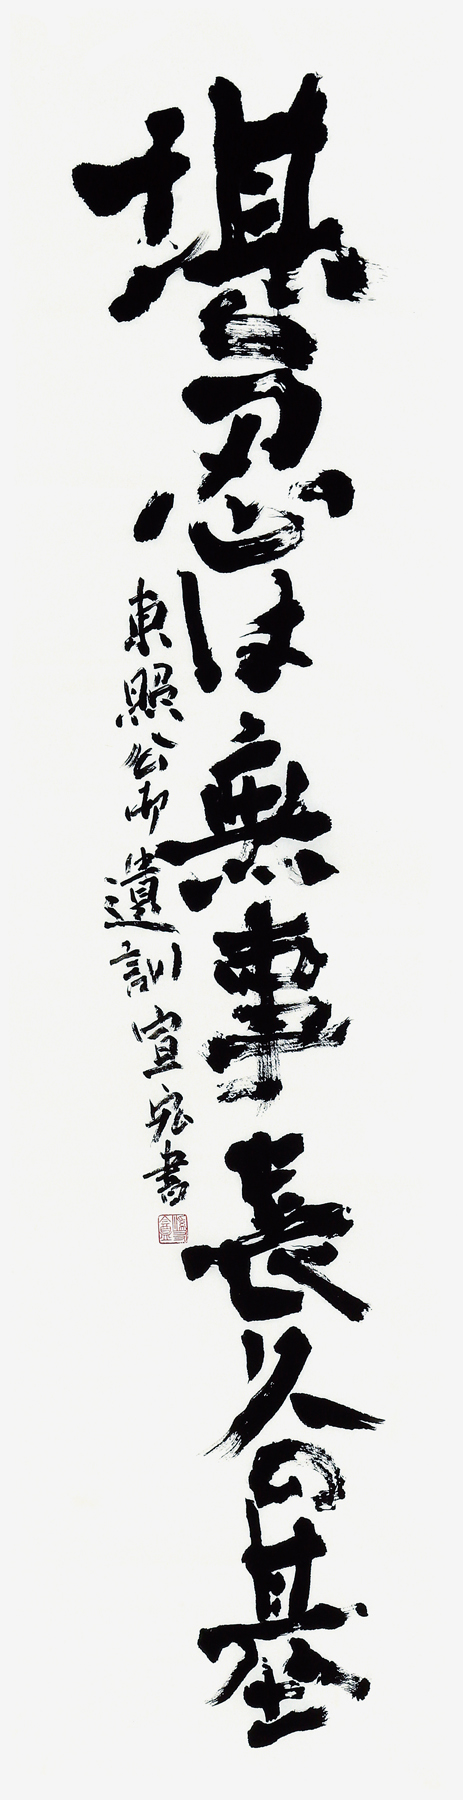 堪忍は無事長久の基
東照公御遺訓 宣宛書